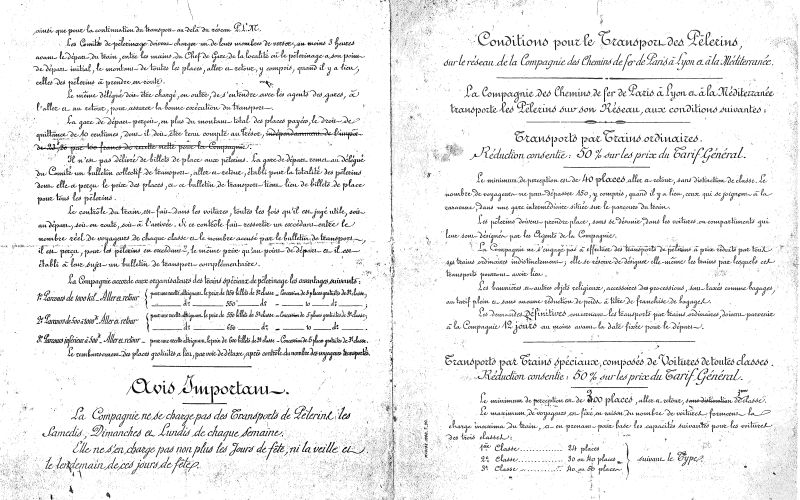 ainsi que pour la continuation du transport au delà du réseau P.L.M.
Les Comités de pèlerinage doivent charger un de leurs membres de verser, au moins 3 heures
avant le départ du train, entre les mains du Chef de Gare de la localité où le pèlerinage a son point
de départ initial, le montant de toutes les places, aller et retour, y compris, quand il y a lieu,
celles des pèlerins à prendre en route.
Le même délégué doit être chargé, en outre, de s'entendre avec les agents des gares, à
l'aller et au retour, pour assurer la bonne exécution du transport.
La gare de départ perçoit, en plus du montant total des places payées, le droit de
quittance de 10 centimes, dont il doit être tenu compte au Trésor, indépendamment de l'impôt
de par 100 francs de recette nette pour la Compagnie.
Il n'est pas délivré de billets de place aux pèlerins. La gare de départ remet au délégué
du Comité un bulletin collectif de transport, aller et retour, établi pour la totalité des pèlerins
dont elle a perçu le prix des places, et ce bulletin de transport tient lieu de billets de place
pour tous les pèlerins.
Le contrôle du train est fait dans les voitures, toutes les fois qu'il est jugé utile, soit
au départ, soit en route, soit à l'arrivée. Si ce contrôle fait ressortir un excédant entre le
nombre réel de voyageurs de chaque classe et le nombre accusé par le bulletin de transport,
il est perçu, pour les pèlerins en excédant, le même prix qu'au point de départ et il est
établi à leur sujet un bulletin de transport complémentaire.
La Compagnie accorde aux organisateurs des trains spéciaux de pèlerinage les avantages suivants:
1° Parcours de 1000 kil. Aller et retour
2° Parcours de 500 à 1000 k. Aller et retour
3° Parcours inférieur à 500 k. Aller et retour
Le remboursement des places gratuites a lieu, par voie de détaxe, après contrôle du nombre des voyageurs transportés.
Avis Important.
La Compagnie ne se charge pas des Transports de Pèlerins les
Samedis, Dimanches et Lundis de chaque semaine.
Elle ne s'en charge pas non plus les Jours de fête, ni la veille et
le lendemain de ces jours de fête.
Conditions pour le Transport des Pèlerins,
sur le réseau de la Compagnie des Chemins de fer de Paris à Lyon et à la Méditerranée.
La Compagnie des Chemins de fer de Paris à Lyon et à la Méditerranée
transporte les Pèlerins sur son Réseau, aux conditions suivantes:
Transports par Trains ordinaires.
Réduction consentie: 50 % sur les prix du Tarif Général.
Le minimum de perception est de 40 places aller et retour, sans distinction de classe. Le
nombre de voyageurs ne peut dépasser 150, y compris, quand il y a lieu, ceux qui se joignent à la
caravane dans une gare intermédiaire située sur le parcours du train.
Les pèlerins doivent prendre place, sans se désunir, dans les voitures ou compartiments qui
leur sont désignés par les Agents de la Compagnie.
La Compagnie ne s'engage pas à effectuer des transports de pèlerins à prix réduits par tous
ses trains ordinaires indistinctement; elle se réserve de désigner elle-même les trains par lesquels ces
transports peuvent avoir lieu.
Les bannières et autres objets religieux, accessoires des processions, sont taxés comme bagages,
au tarif plein et sans aucune réduction de poids à titre de franchise de bagages.
Les demandes Définitives concernant les transports par trains ordinaires, doivent parvenir
à la Compagnie 12 jours au moins avant la date fixée pour le départ.
Transports par Trains spéciaux, composés de Voitures de toutes classes.
Réduction consentie: 50 % sur les prix du Tarif Général.
Le minimum de perception est de 300 places, aller et retour, sans distinction de classe.
Le maximum de voyageurs est fixé en raison du nombre de voitures formant la
charge maxima du train, et en prenant pour base les capacités suivantes pour les voitures
des trois classes:
1ère Classe 24 places
2e Classe 30 ou 40 places
3e Classe 40 ou 50 places
suivant le Type.